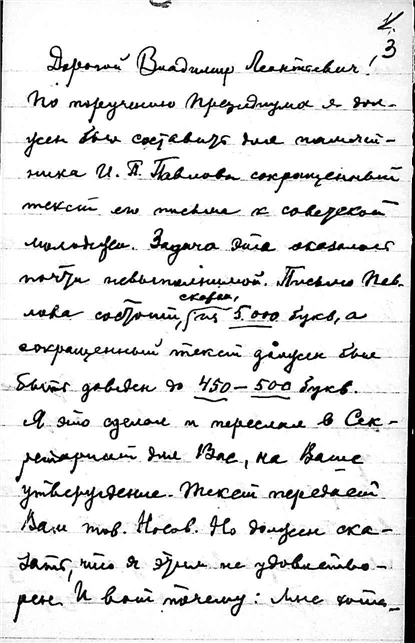 3
Дорогой Владимир Леонтьевич!
По поручению Президиума я дол-
жен был составить для памят-
ника И. П. Павлова сокращенный
текст его письма к советской
молодежи. Задача эта оказалась
почти невыполнимой. Письмо Пав-
лова состоит, скажем, из 5.000 букв, а
сокращенный текст должен был
быть доведен до 450–500 букв.
Я это сделал и переслал в Сек-
ретариат для Вас, на Ваше
утверждение. Текст передаст
Вам тов. Носов. Но должен ска-
зать, что я этим не удовлетво-
рен. И вот почему: мне хоте-